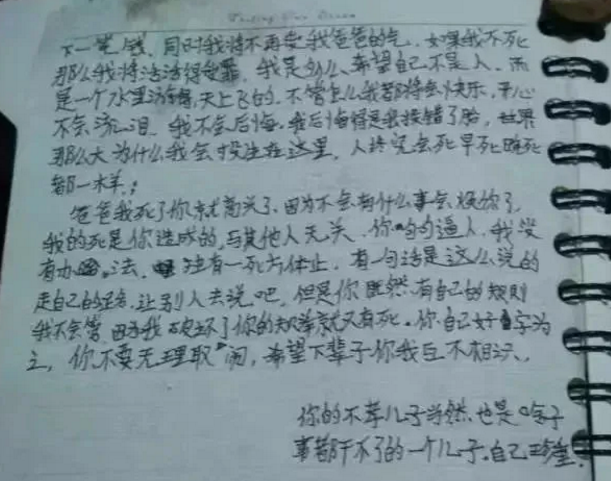 下一笔钱、同时我将不再受我爸爸的气、如果我不死
那么我将活活得受罪、我是多么希望自己不是人、而
是一个水里游得、天上飞的、不管怎么我都将会快乐、开心
不会流泪、我不会后悔、我后悔得是我投错了胎、世界
那么大为什么我会投生在这里、人终究会死早死晚死
都一样；
爸爸我死了你就高兴了、因为不会有什么事会烦你了、
我的死是你造成的、与其他人无关、你句句逼人、我没
有办法、独有一死方体止、有一句话是这么说的
走自己的路、让别人去说吧、但是你既然有自己的规则
我不会管、因为我破坏了你的规举就又有死、你自己好字为
之、你不要无理取闹、希望下辈子你我互不相识、
你的不孝儿子当然也是啥子
事都干不了的一个儿子、自己珍重、